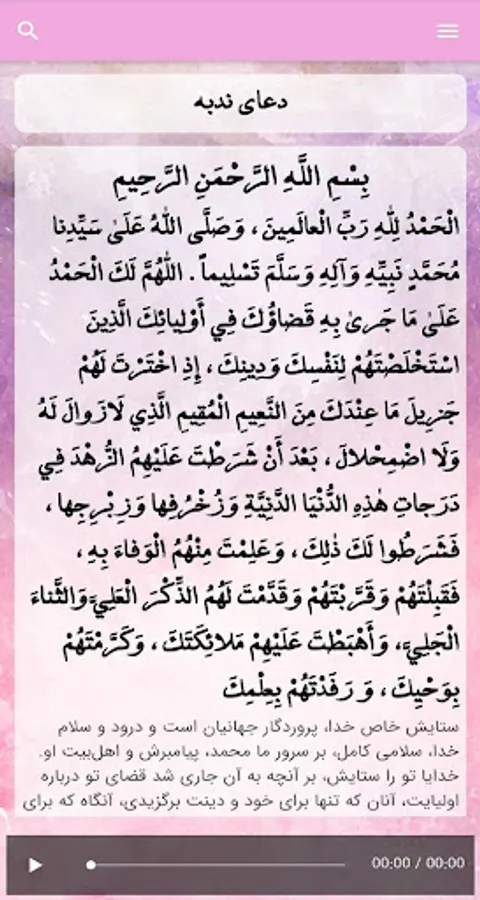 دعای ندبه
بِسْمِ اللَّهِ الرَّحْمَنِ الرَّحِيمِ
الْحَمْدُ لِلّٰهِ رَبِّ الْعالَمِينَ ، وَصَلَّى اللّٰهُ عَلَىٰ سَيِّدِنا
مُحَمَّدٍ نَبِيِّهِ وَآلِهِ وَسَلَّمَ تَسْلِيماً . اللّٰهُمَّ لَكَ الْحَمْدُ
عَلَىٰ مَا جَرىٰ بِهِ قَضاؤُكَ فِي أَوْلِيائِكَ الَّذِينَ
اسْتَخْلَصْتَهُمْ لِنَفْسِكَ وَدِينِكَ ، إِذِ اخْتَرْتَ لَهُمْ
جَزِيلَ مَا عِنْدَكَ مِنَ النَّعِيمِ الْمُقِيمِ الَّذِي لَازَوالَ لَهُ
وَلَا اضْمِحْلالَ ، بَعْدَ أَنْ شَرَطْتَ عَلَيْهِمُ الزُّهْدَ فِي
دَرَجاتِ هٰذِهِ الدُّنْيَا الدَّنِيَّةِ وَزُخْرُفِها وَزِبْرِجِها ،
فَشَرَطُوا لَكَ ذٰلِكَ ، وَعَلِمْتَ مِنْهُمُ الْوَفاءَ بِهِ ،
فَقَبِلْتَهُمْ وَقَرَّبْتَهُمْ وَقَدَّمْتَ لَهُمُ الذِّكْرَ الْعَلِيَّ وَالثَّناءَ
الْجَلِيَّ، وَأَهْبَطْتَ عَلَيْهِمْ مَلائِكَتَكَ ، وَكَرَّمْتَهُمْ
بِوَحْيِكَ ، وَ رَفَدْتَهُمْ بِعِلْمِكَ
ستایش خاص خدا، پروردگار جهانیان است و درود و سلام
خدا، سلامی کامل، بر سرور ما محمد، پیامبرش و اهل‌بیت او.
خدایا تو را ستایش، بر آنچه به آن جاری شد قضای تو درباره
اولیایت، آنان که تنها برای خود و دینت برگزیدی، آنگاه که برای
00:00 / 00:00